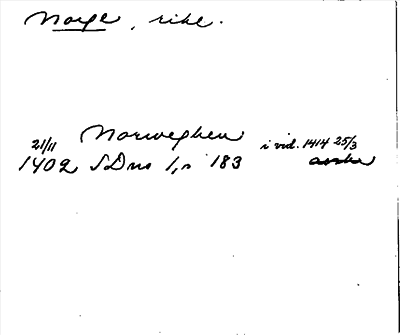 Norge, rike.
Norweghen
21/11 i vid. 1414 25/3
1402 SDns 1, n 183